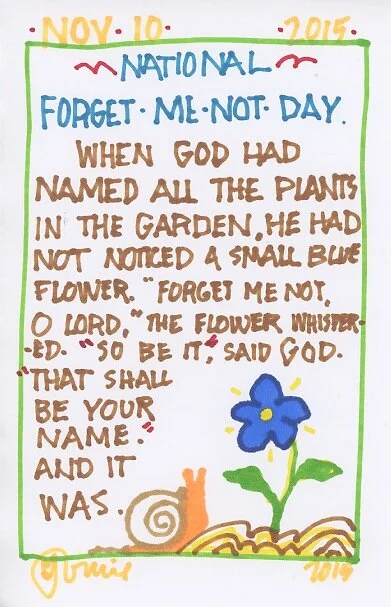 ·NOV·10 ·2015·
NATIONAL
FORGET·ME·NOT·DAY.
WHEN GOD HAD
NAMED ALL THE PLANTS
IN THE GARDEN, HE HAD
NOT NOTICED A SMALL BLUE
FLOWER. "FORGET ME NOT,
O LORD," THE FLOWER WHISPER-
-ED. "SO BE IT," SAID GOD.
"THAT SHALL
BE YOUR
NAME."
AND IT
WAS.
2015